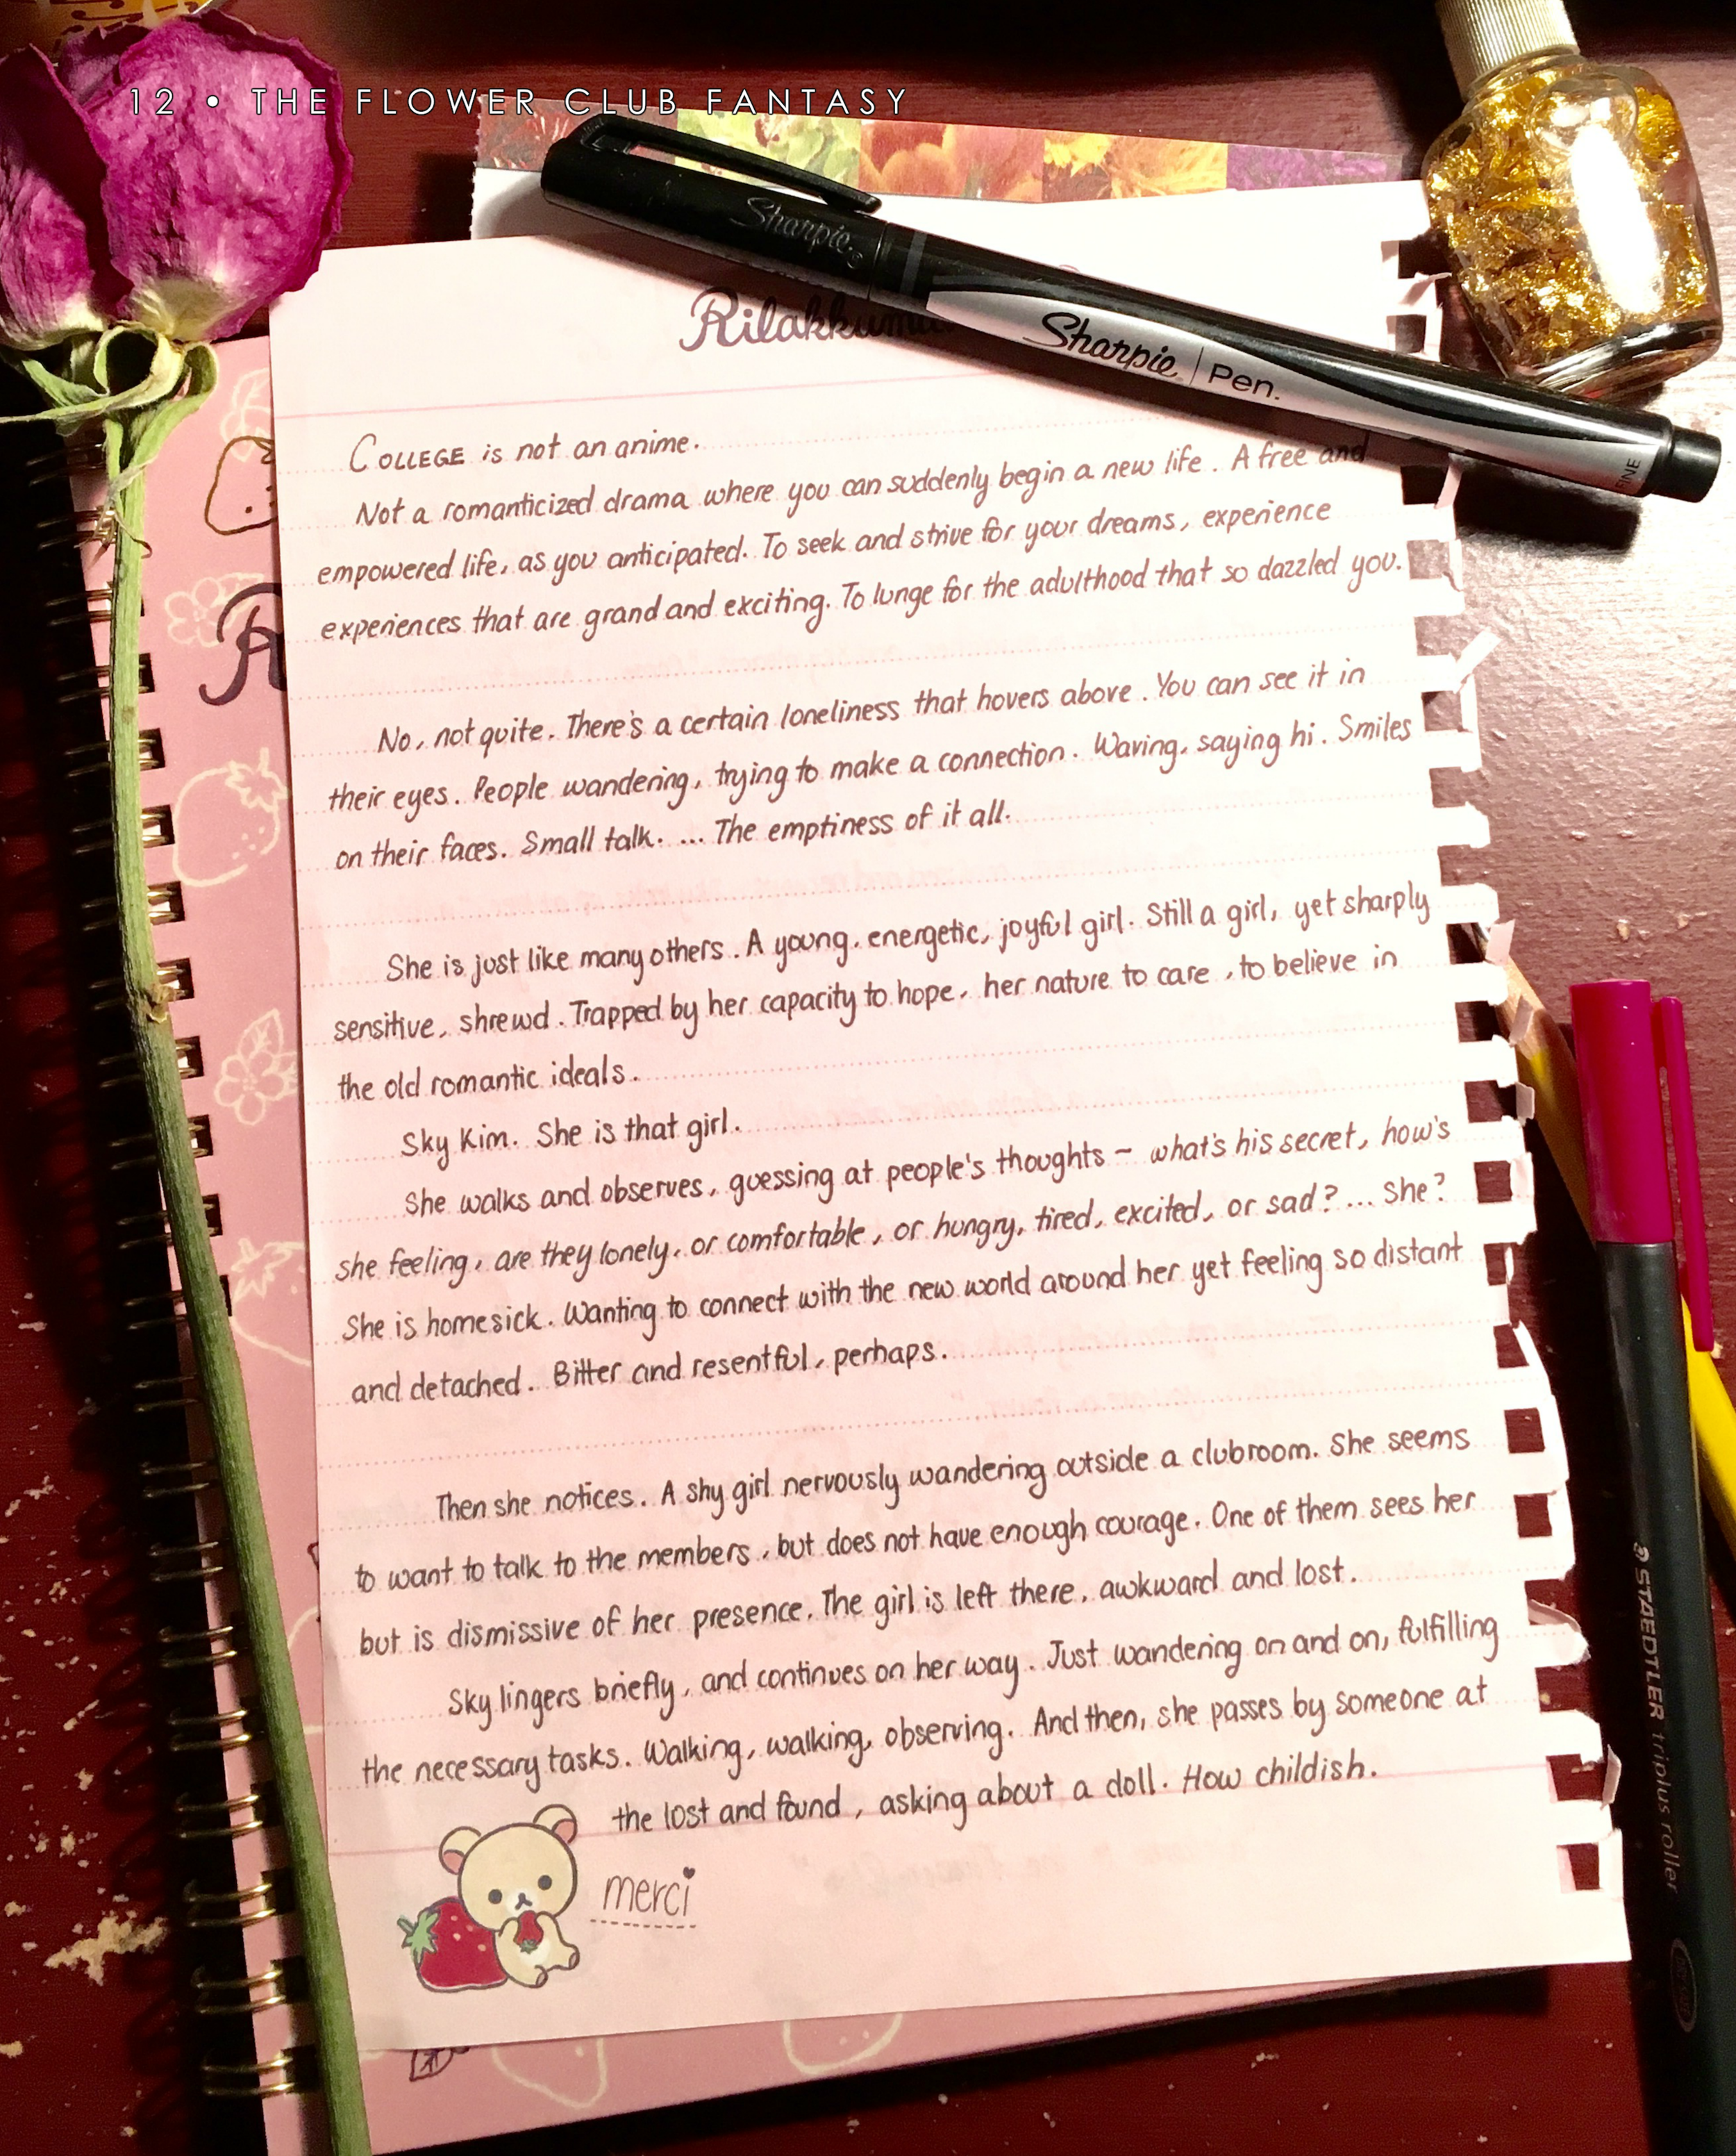 12 • THE FLOWER CLUB FANTASY
Sharpie
Rilakkuma
Sharpie Pen.
FINE
COLLEGE is not an anime.
Not a romanticized drama where you can suddenly begin a new life. A free and
empowered life, as you anticipated. To seek and strive for your dreams, experience
experiences that are grand and exciting. To lunge for the adulthood that so dazzled you.
No, not quite. There's a certain loneliness that hovers above. You can see it in
their eyes. People wandering, trying to make a connection. Waving, saying hi. Smiles
on their faces. Small talk. ... The emptiness of it all.
She is just like many others. A young, energetic, joyful girl. Still a girl, yet sharply
sensitive, shrewd. Trapped by her capacity to hope, her nature to care, to believe in
the old romantic ideals.
Sky Kim. She is that girl.
She walks and observes, guessing at people's thoughts – what's his secret, how's
she feeling, are they lonely, or comfortable, or hungry, tired, excited, or sad? ... She?
She is homesick. Wanting to connect with the new world around her yet feeling so distant
and detached. Bitter and resentful, perhaps.
Then she notices. A shy girl nervously wandering outside a clubroom. She seems
to want to talk to the members, but does not have enough courage. One of them sees her
but is dismissive of her presence. The girl is left there, awkward and lost.
Sky lingers briefly, and continues on her way. Just wandering on and on, fulfilling
the necessary tasks. Walking, walking, observing. And then, she passes by someone at
the lost and found, asking about a doll. How childish.
merci
STAEDTLER triplus roller